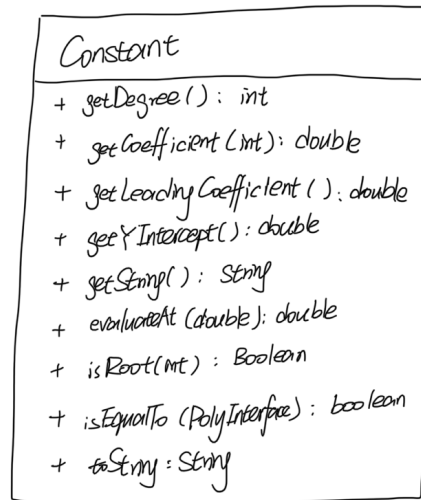 Constant
+ getDegree(): int
+ getCoefficient(int): double
+ getLeadingCoefficient(): double
+ getYIntercept(): double
+ getString(): String
+ evaluateAt(double): double
+ isRoot(int): Boolean
+ isEqualTo(PolyInterface): boolean
+ toString: String